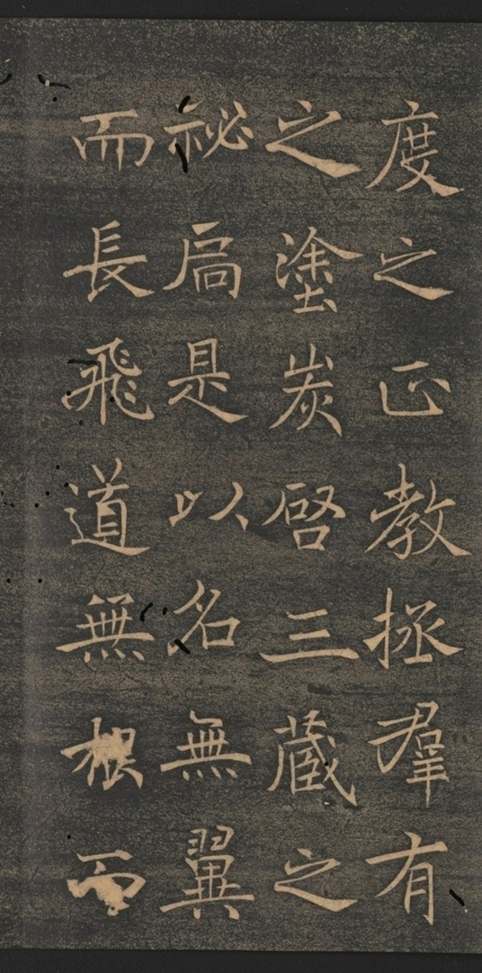 度之正教拯羣有
之塗炭啓三藏之
祕扃是以名無翼
而長飛道無根而